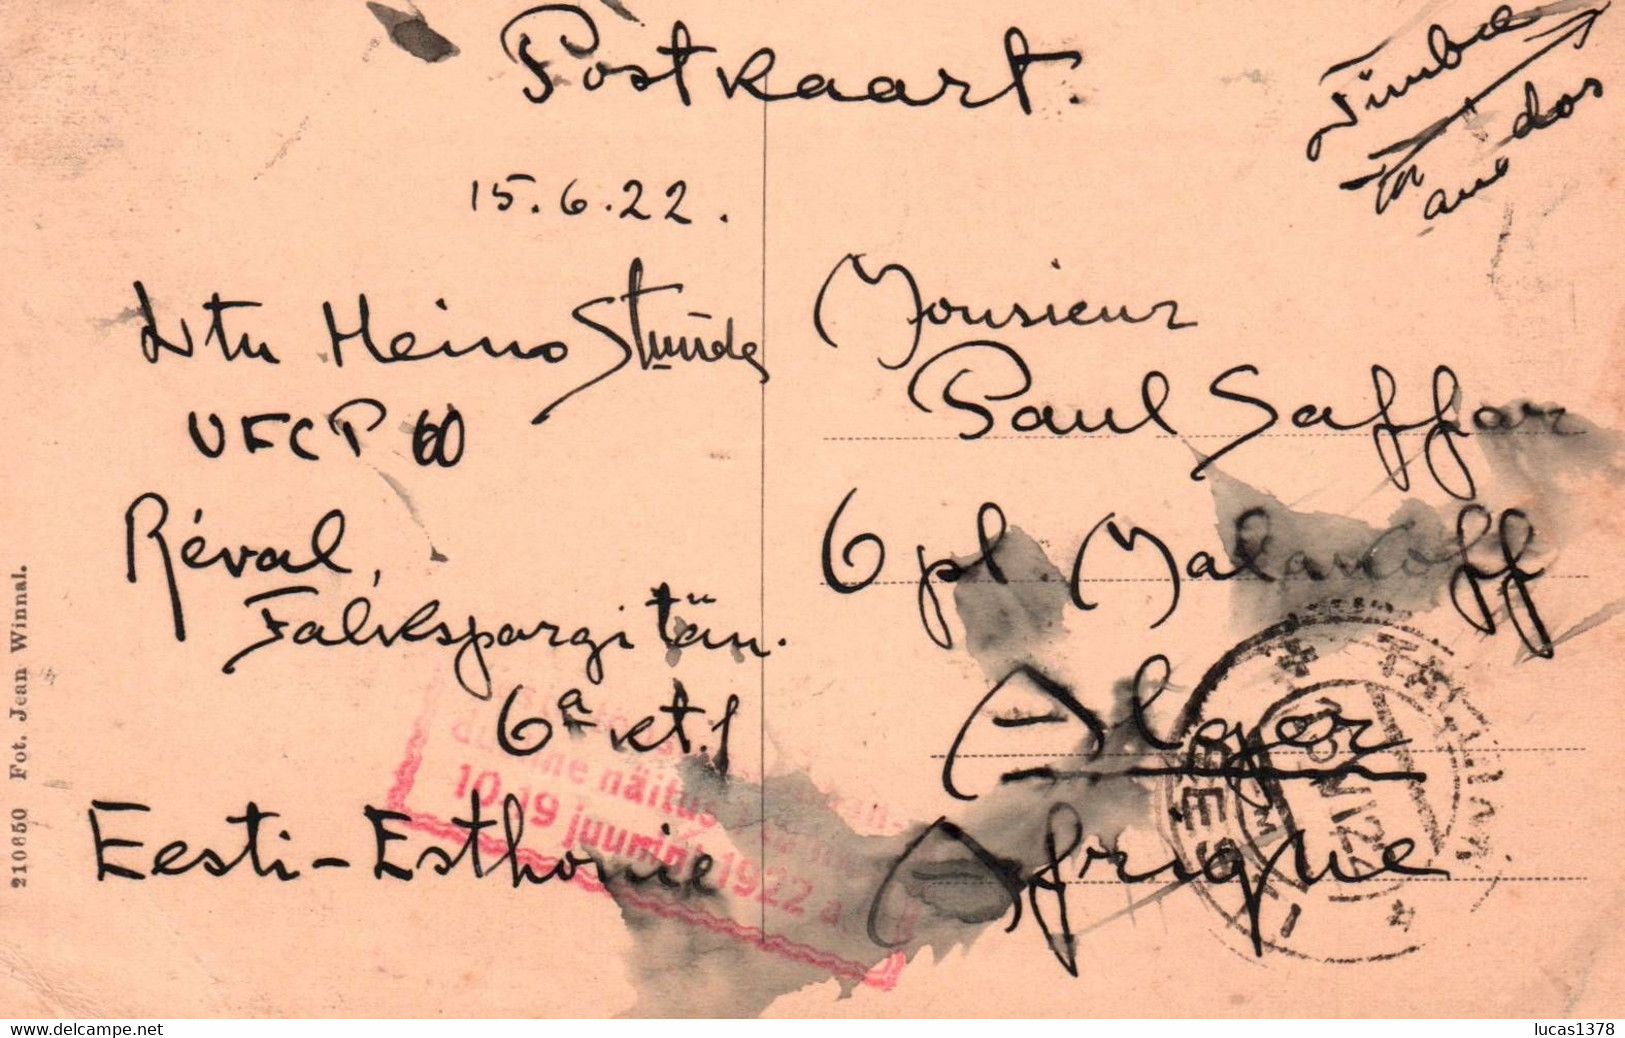 Postkaart.
Timbre
au dos
15.6.22.
Ltn Heino Stünde
UFCP 60
Réval,
Falkspargitän.
6ª kt.
Eesti-Esthonie
Monsieur
Paul Saffar
6 pl. Malakoff
Alger
Afrique
näitus
10-19 juunini 1922 a.
EESTI
210850 Fot. Jean Winnal.
www.delcampe.net
lucas1378